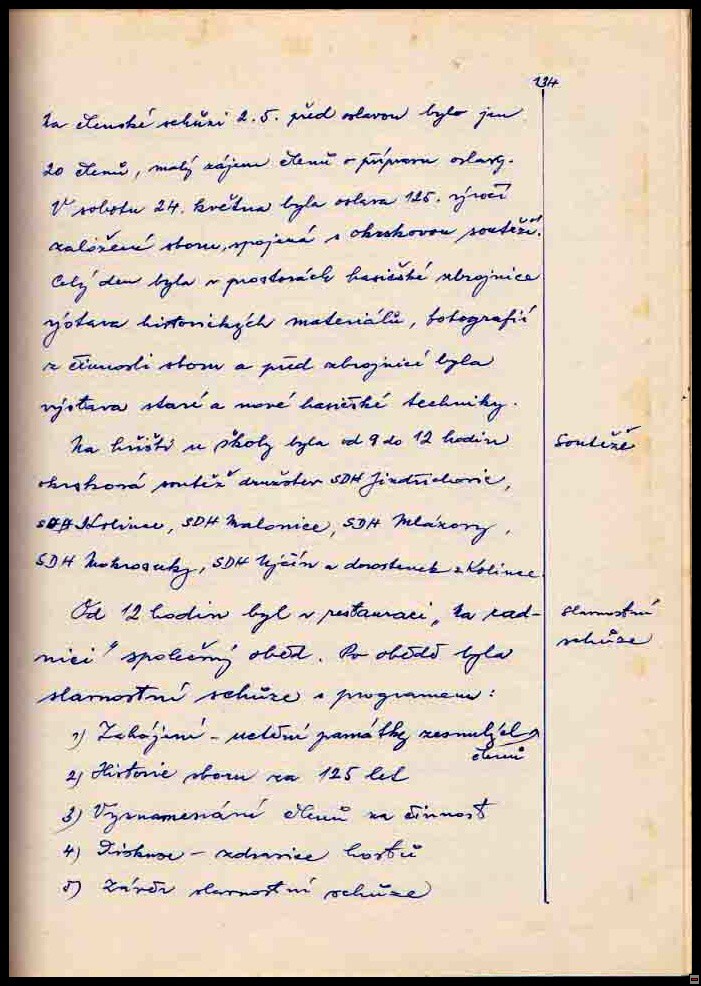 134
Na členské schůzi 2.5. před oslavou bylo jen
20 členů, malý zájem členů o přípravu oslavy.
V sobotu 24. května byla oslava 125. výročí
založení sboru, spojená s okrskovou soutěží.
Celý den byla v prostorách hasičské zbrojnice
výstava historických materiálů, fotografií
z činnosti sboru a před zbrojnicí byla
výstava staré a nové hasičské techniky.
Na hřišti u školy byla od 9 do 12 hodin
Soutěže
okrsková soutěž družstev SDH Jindřichovic,
SDH Kolinec, SDH Malonice, SDH Mlázovy,
SDH Mokrosuky, SDH Ujčín a dorostenek z Kolince.
Od 12 hodin byl v restauraci „Na rad-
nici" společný oběd. Po obědě byla
slavnostní
schůze
slavnostní schůze s programem:
1) Zahájení - uctění památky zesnulých
členů
2) Historie sboru za 125 let
3) Vyznamenání členů za činnost
4) Diskuse - zdravice hostů
5) Závěr slavnostní schůze